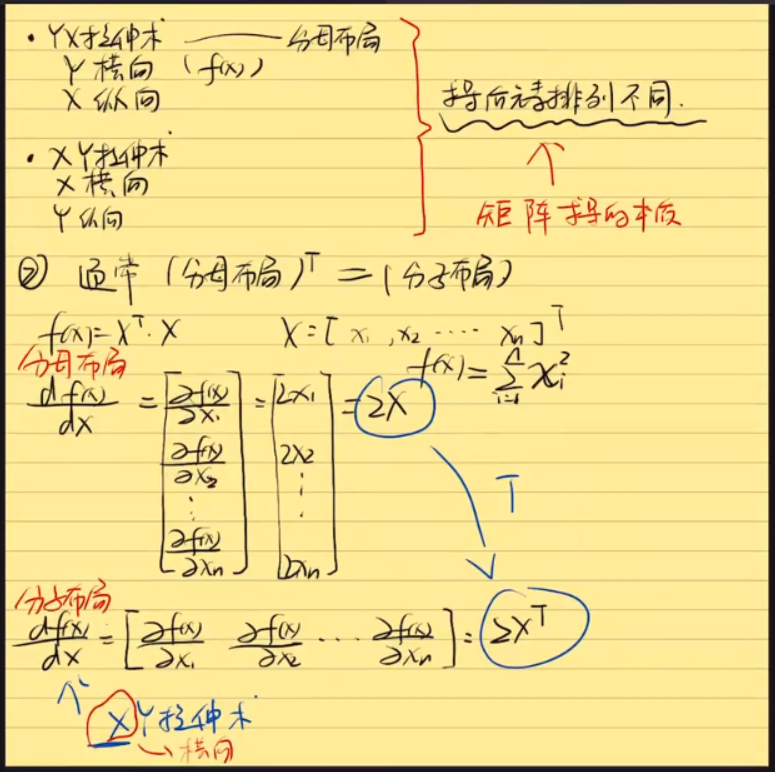 · YX拉伸术 —— 分母布局
Y 横向 (f(x))
X 纵向
求导后元素排列不同.
· XY拉伸术
X 横向
Y 纵向
矩阵求导的本质
② 通常 (分母布局)ᵀ = (分子布局)
f(x) = Xᵀ·X X = [x₁, x₂ ···· xₙ]ᵀ
f(x) = ∑ᵢ₌₁ⁿ xᵢ²
分母布局
df(x)/dX = [∂f(x)/∂x₁ ∂f(x)/∂x₂ ⋮ ∂f(x)/∂xₙ] = [2x₁ 2x₂ ⋮ 2xₙ] = 2X
T
分子布局
df(x)/dX = [∂f(x)/∂x₁ ∂f(x)/∂x₂ ··· ∂f(x)/∂xₙ] = 2Xᵀ
XY拉伸术
横向